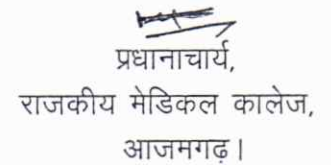 प्रधानाचार्य,
राजकीय मेडिकल कालेज,
आजमगढ़।